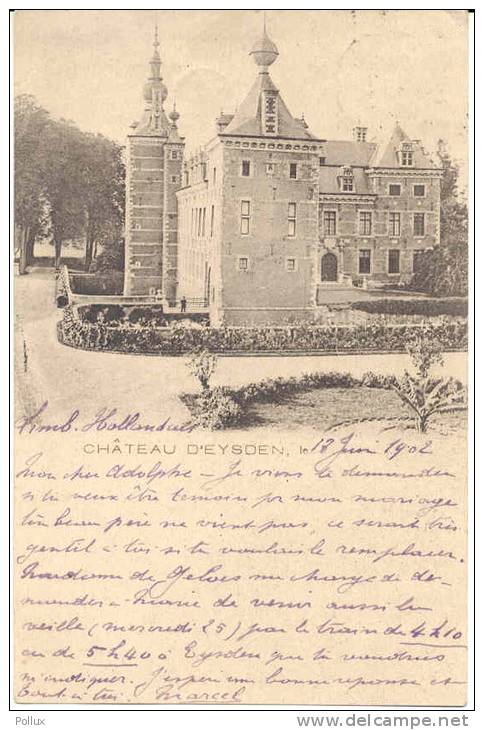 Limb. Hollandais
CHÂTEAU D'EYSDEN, le 12 Juin 1902
Mon cher Adolphe – Je viens te demander
si tu veux être temoin pr mon mariage
ton beau père ne vient pas, ce serait très
gentil à toi si tu voulais le remplacer.
Madame de Geloes me charge de de-
mander à Marie de venir aussi la
veille (mercredi 25) par le train de 4h10
ou de 5h40 à Eysden que tu voudras
m'indiquer. J'espère une bonne réponse et
tout à toi. Marcel
Pollux
www.delcampe.net